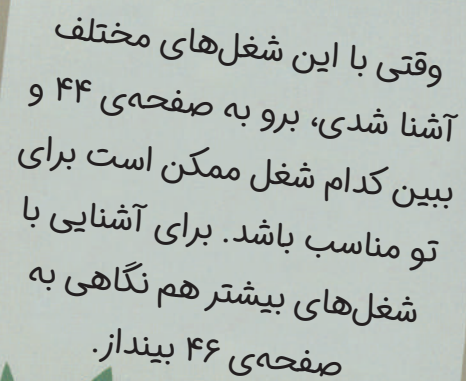 وقتی با این شغل‌های مختلف
آشنا شدی، برو به صفحه‌ی ۴۴ و
ببین کدام شغل ممکن است برای
تو مناسب باشد. برای آشنایی با
شغل‌های بیشتر هم نگاهی به
صفحه‌ی ۴۶ بینداز.